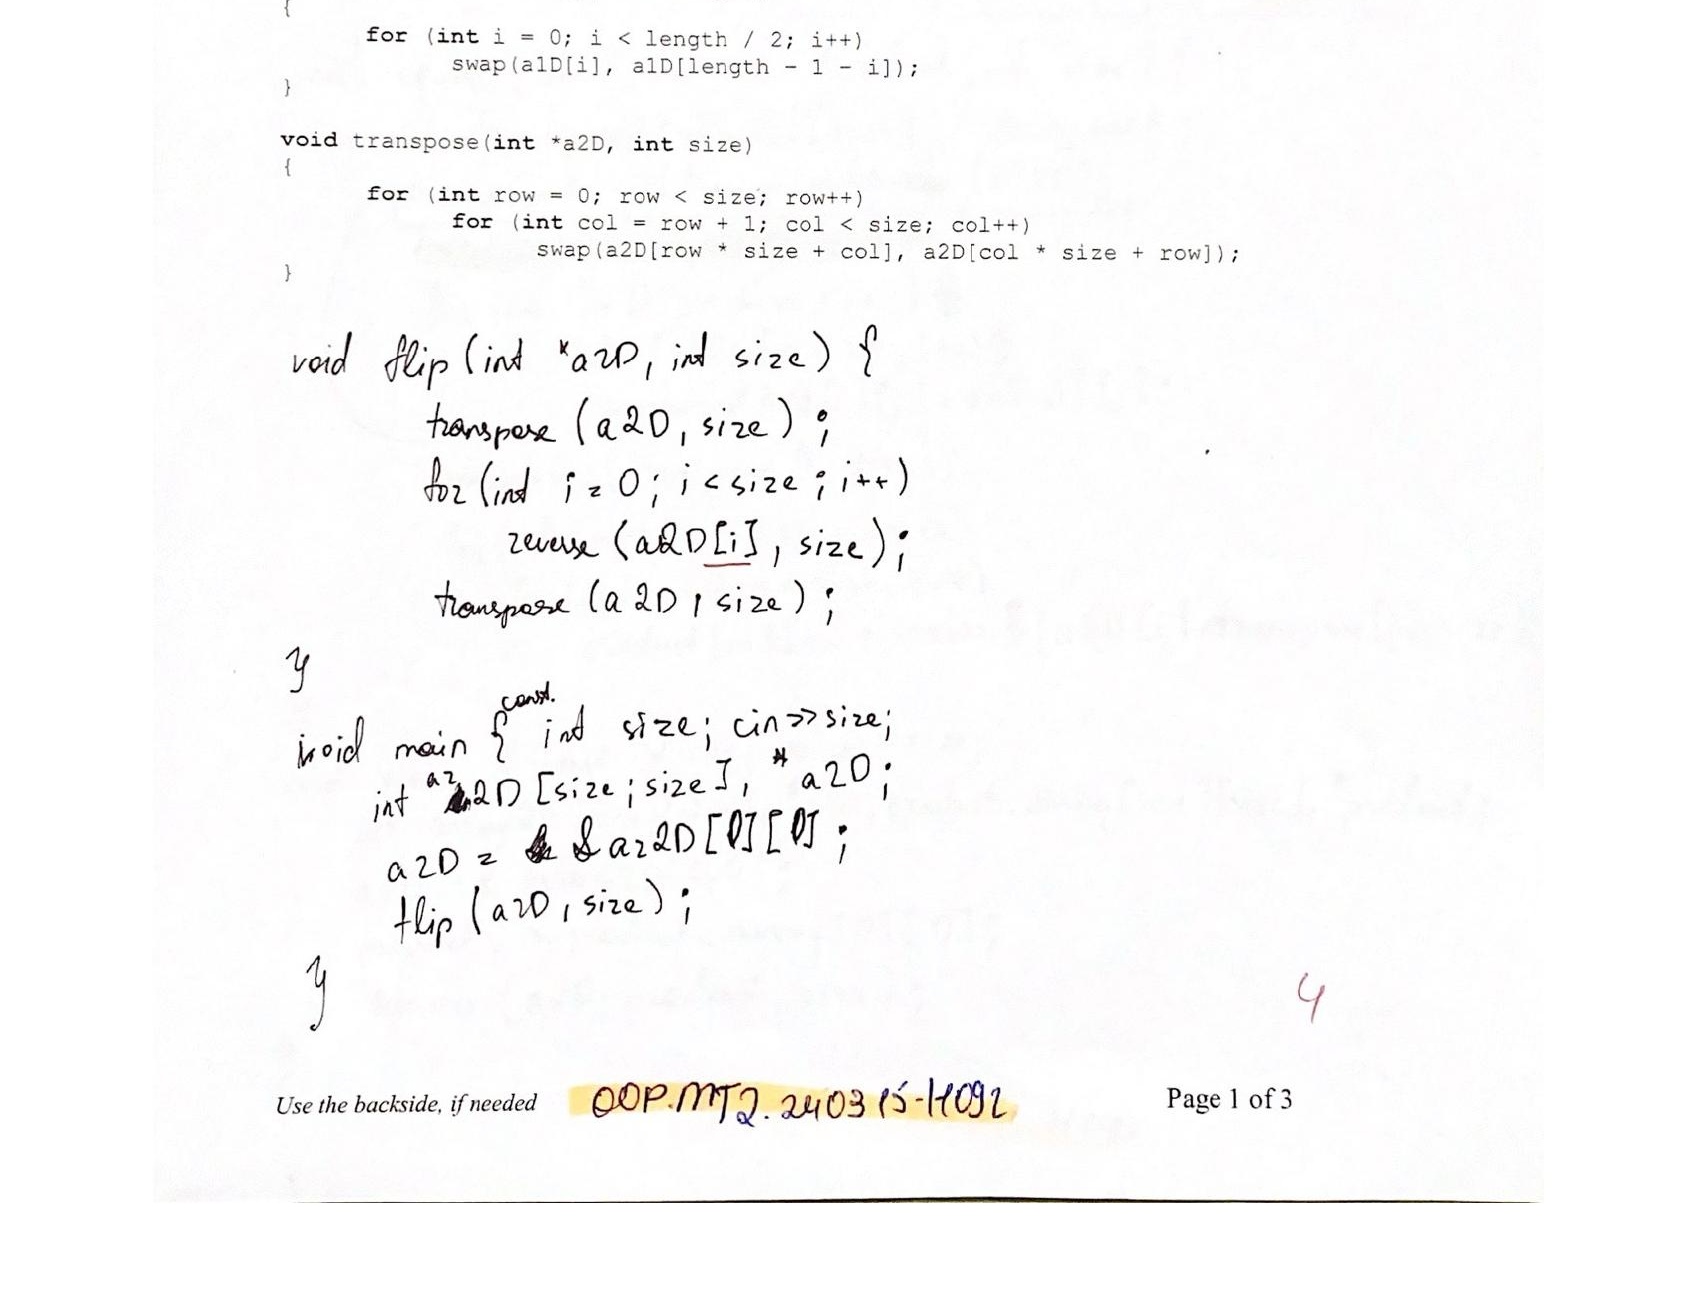 {
for (int i = 0; i < length / 2; i++)
swap(a1D[i], a1D[length - 1 - i]);
}
void transpose(int *a2D, int size)
{
for (int row = 0; row < size; row++)
for (int col = row + 1; col < size; col++)
swap(a2D[row * size + col], a2D[col * size + row]);
}
void flip(int *a2D, int size) {
transpose (a2D, size);
for (int i = 0; i < size; i++)
reverse (a2D[i], size);
transpose (a2D, size);
}
const.
void main { int size; cin>>size;
int az2D [size; size], *a2D;
a2D = & az2D[0][0];
flip (a2D, size);
}
4
Use the backside, if needed OOP.MT2.240315-H092 Page 1 of 3